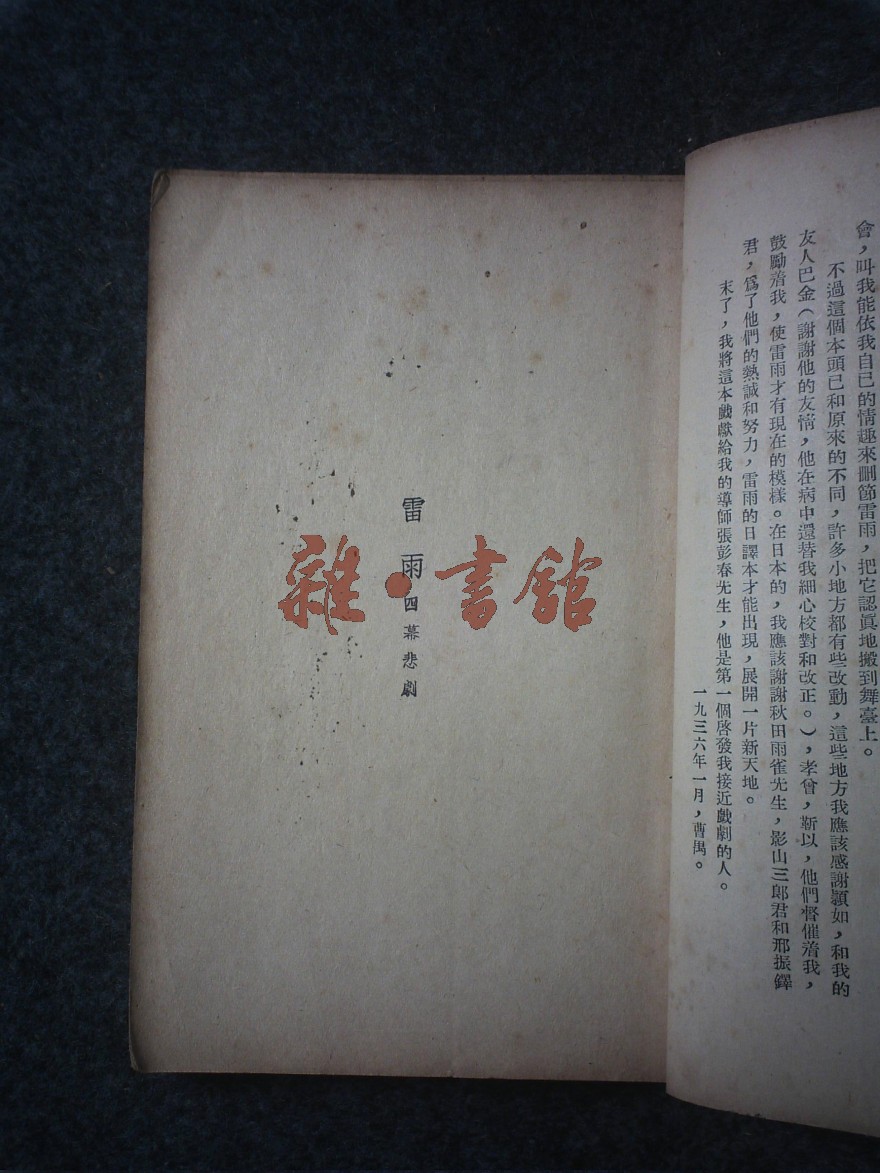 會，叫我能依我自已的情趣來刪節雷雨，把它認眞地搬到舞臺上。
不過這個本頭已和原來的不同，許多小地方都有些改動，這些地方我應該感謝穎如，和我的
友人巴金（謝謝他的友情，他在病中還替我細心校對和改正。），孝曾，靳以，他們督催着我，
鼓勵着我，使雷雨才有現在的模樣。在日本的，我應該謝謝秋田雨雀先生，影山三郎君和邢振鐸
君，爲了他們的熱誠和努力，雷雨的日譯本才能出現，展開一片新天地。
末了，我將這本戲獻給我的導師張彭春先生，他是第一個啓發我接近戲劇的人。
一九三六年一月，曹禺。
雷雨
四幕悲劇
雜·書館